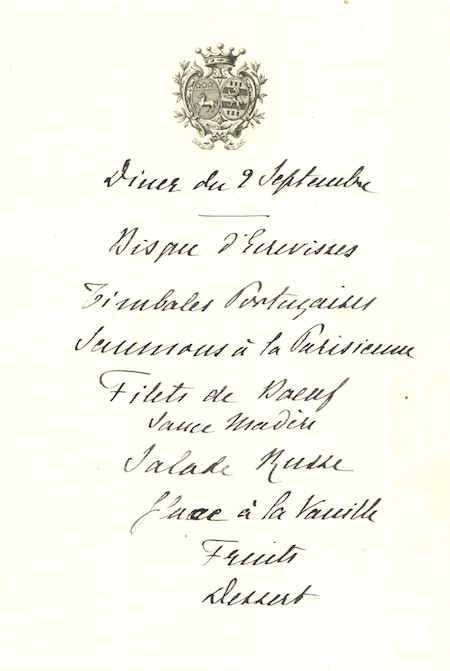 Diner du 9 Septembre
Bisque d'Ecrevisses
Timbales Portugaises
Saumons à la Parisienne
Filets de Boeuf
Sauce Madère
Salade Russe
Glace à la Vanille
Fruits
Dessert